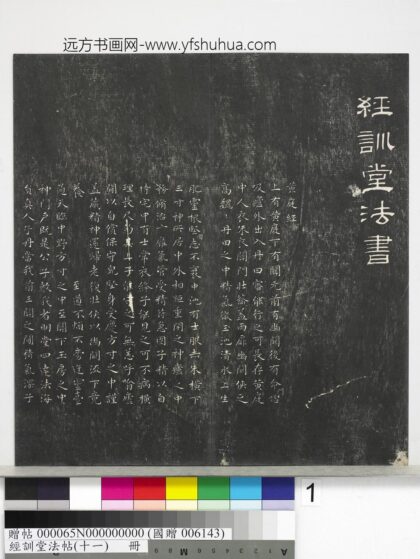 远方书画网-www.yfshuhua.com
經訓堂法書
黃庭經
上有黃庭下有關元前有幽闕後有命門
噓吸廬外出入丹田審能行之可長存黃庭
中人衣朱衣關門壯籥蓋兩扉幽闕俠之
高魏魏丹田之中精氣微玉池清水上生
肥靈根堅志不衰中池有士服赤朱橫下
三寸神所居中外相距重閉之神廬之中
務脩治玄廱氣管受精符急固子精以自
持宅中有士常衣絳子能見之可不病橫
理長尺約其上子能守之可無恙呼噏廬
間以自償保守完堅身受慶方寸之中謹
蓋藏精神還歸老復壯俠以幽闕流下竟
養
至道不煩不旁迕靈臺
通天臨中野方寸之中至關下玉房之中
神門戶既是公子教我者明堂四達法海
員真人子丹當我前三關之間精氣深子
1
贈帖 000065N000000000 (國贈 006143)
經訓堂法帖(十一) 冊